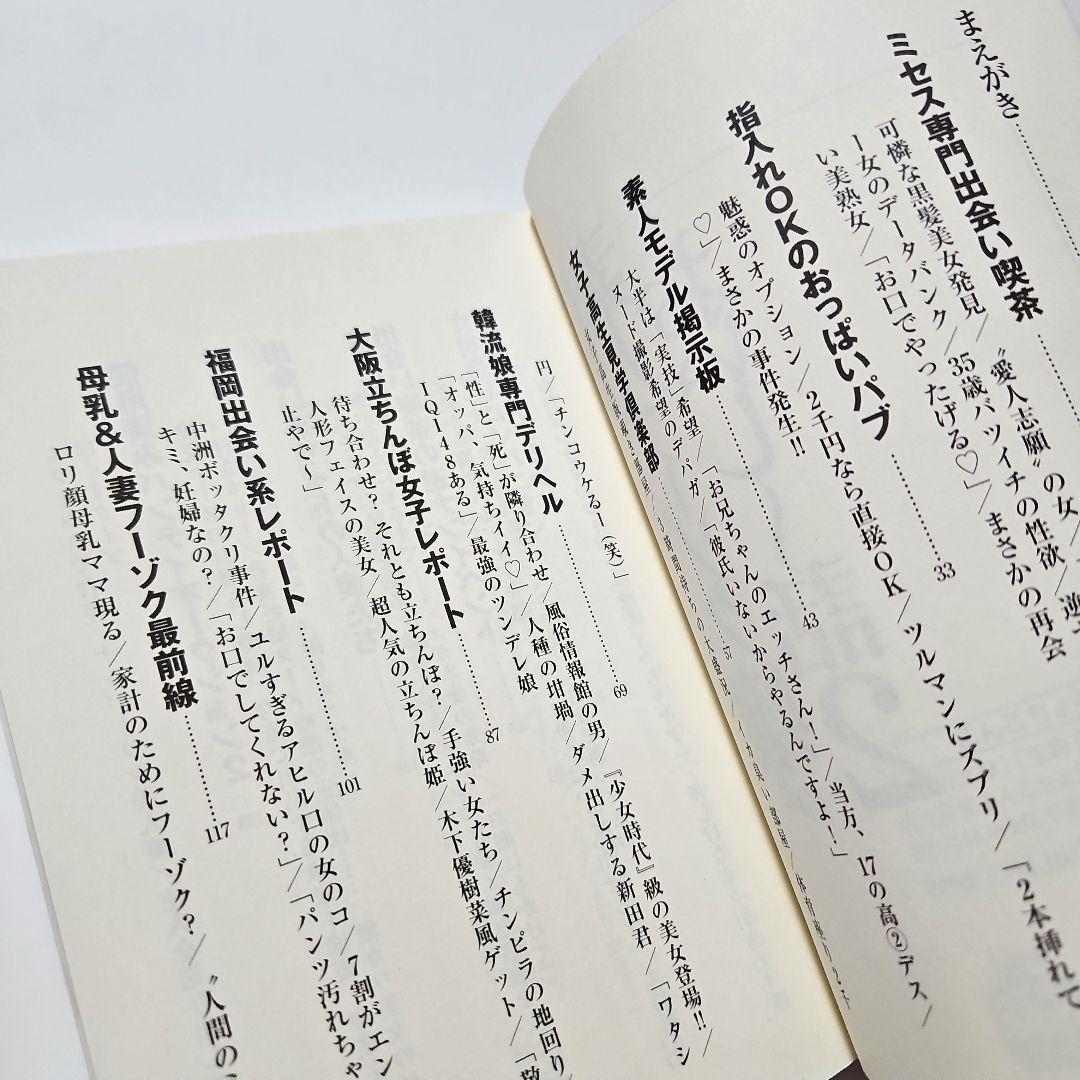 まえがき
ミセス専門出会い喫茶
可憐な黒髪美女発見/“愛人志願”の女/逆
ー女のデータバンク/35歳バツイチの性欲/まさかの再会
い美熟女/「お口でやったげる♡」/
指入れOKのおっぱいパブ 33
魅惑のオプション/2千円なら直接OK/ツルマンにズブリ/「2本挿れて
♡」/まさかの事件発生!!
素人モデル掲示板 43
大半は「実技」希望/「お兄ちゃんのエッチさん!」/当方、17の高②デス/
ヌード撮影希望のデバガ/「彼氏いないからやるんですよ!」
女子高生見学倶楽部 57
4時間待ちの大盛況/イカ臭い部屋/
円/「チンコウケるー(笑)」
韓流娘専門デリヘル 69
「性」と「死」が隣り合わせ/風俗情報館の男/『少女時代』級の美女登場!!/
「オッパ、気持ちイイ♡」/人種の坩堝/ダメ出しする新田君/「ワタシ
IQ148ある」/最強のツンデレ娘
大阪立ちんぼ女子レポート 87
待ち合わせ? それとも立ちんぼ?/手強い女たち/チンピラの地回り/
人形フェイスの美女/超人気の立ちんぼ姫/木下優樹菜風ゲット/「敬
止やで〜」
福岡出会い系レポート 101
中洲ボッタクリ事件/ユルすぎるアヒル口の女のコ/7割がエン
キミ、妊婦なの?/「お口でしてくれない?」/「パンツ汚れちゃ
母乳&人妻フーゾク最前線 117
ロリ顔母乳ママ現る/家計のためにフーゾク?/“人間の